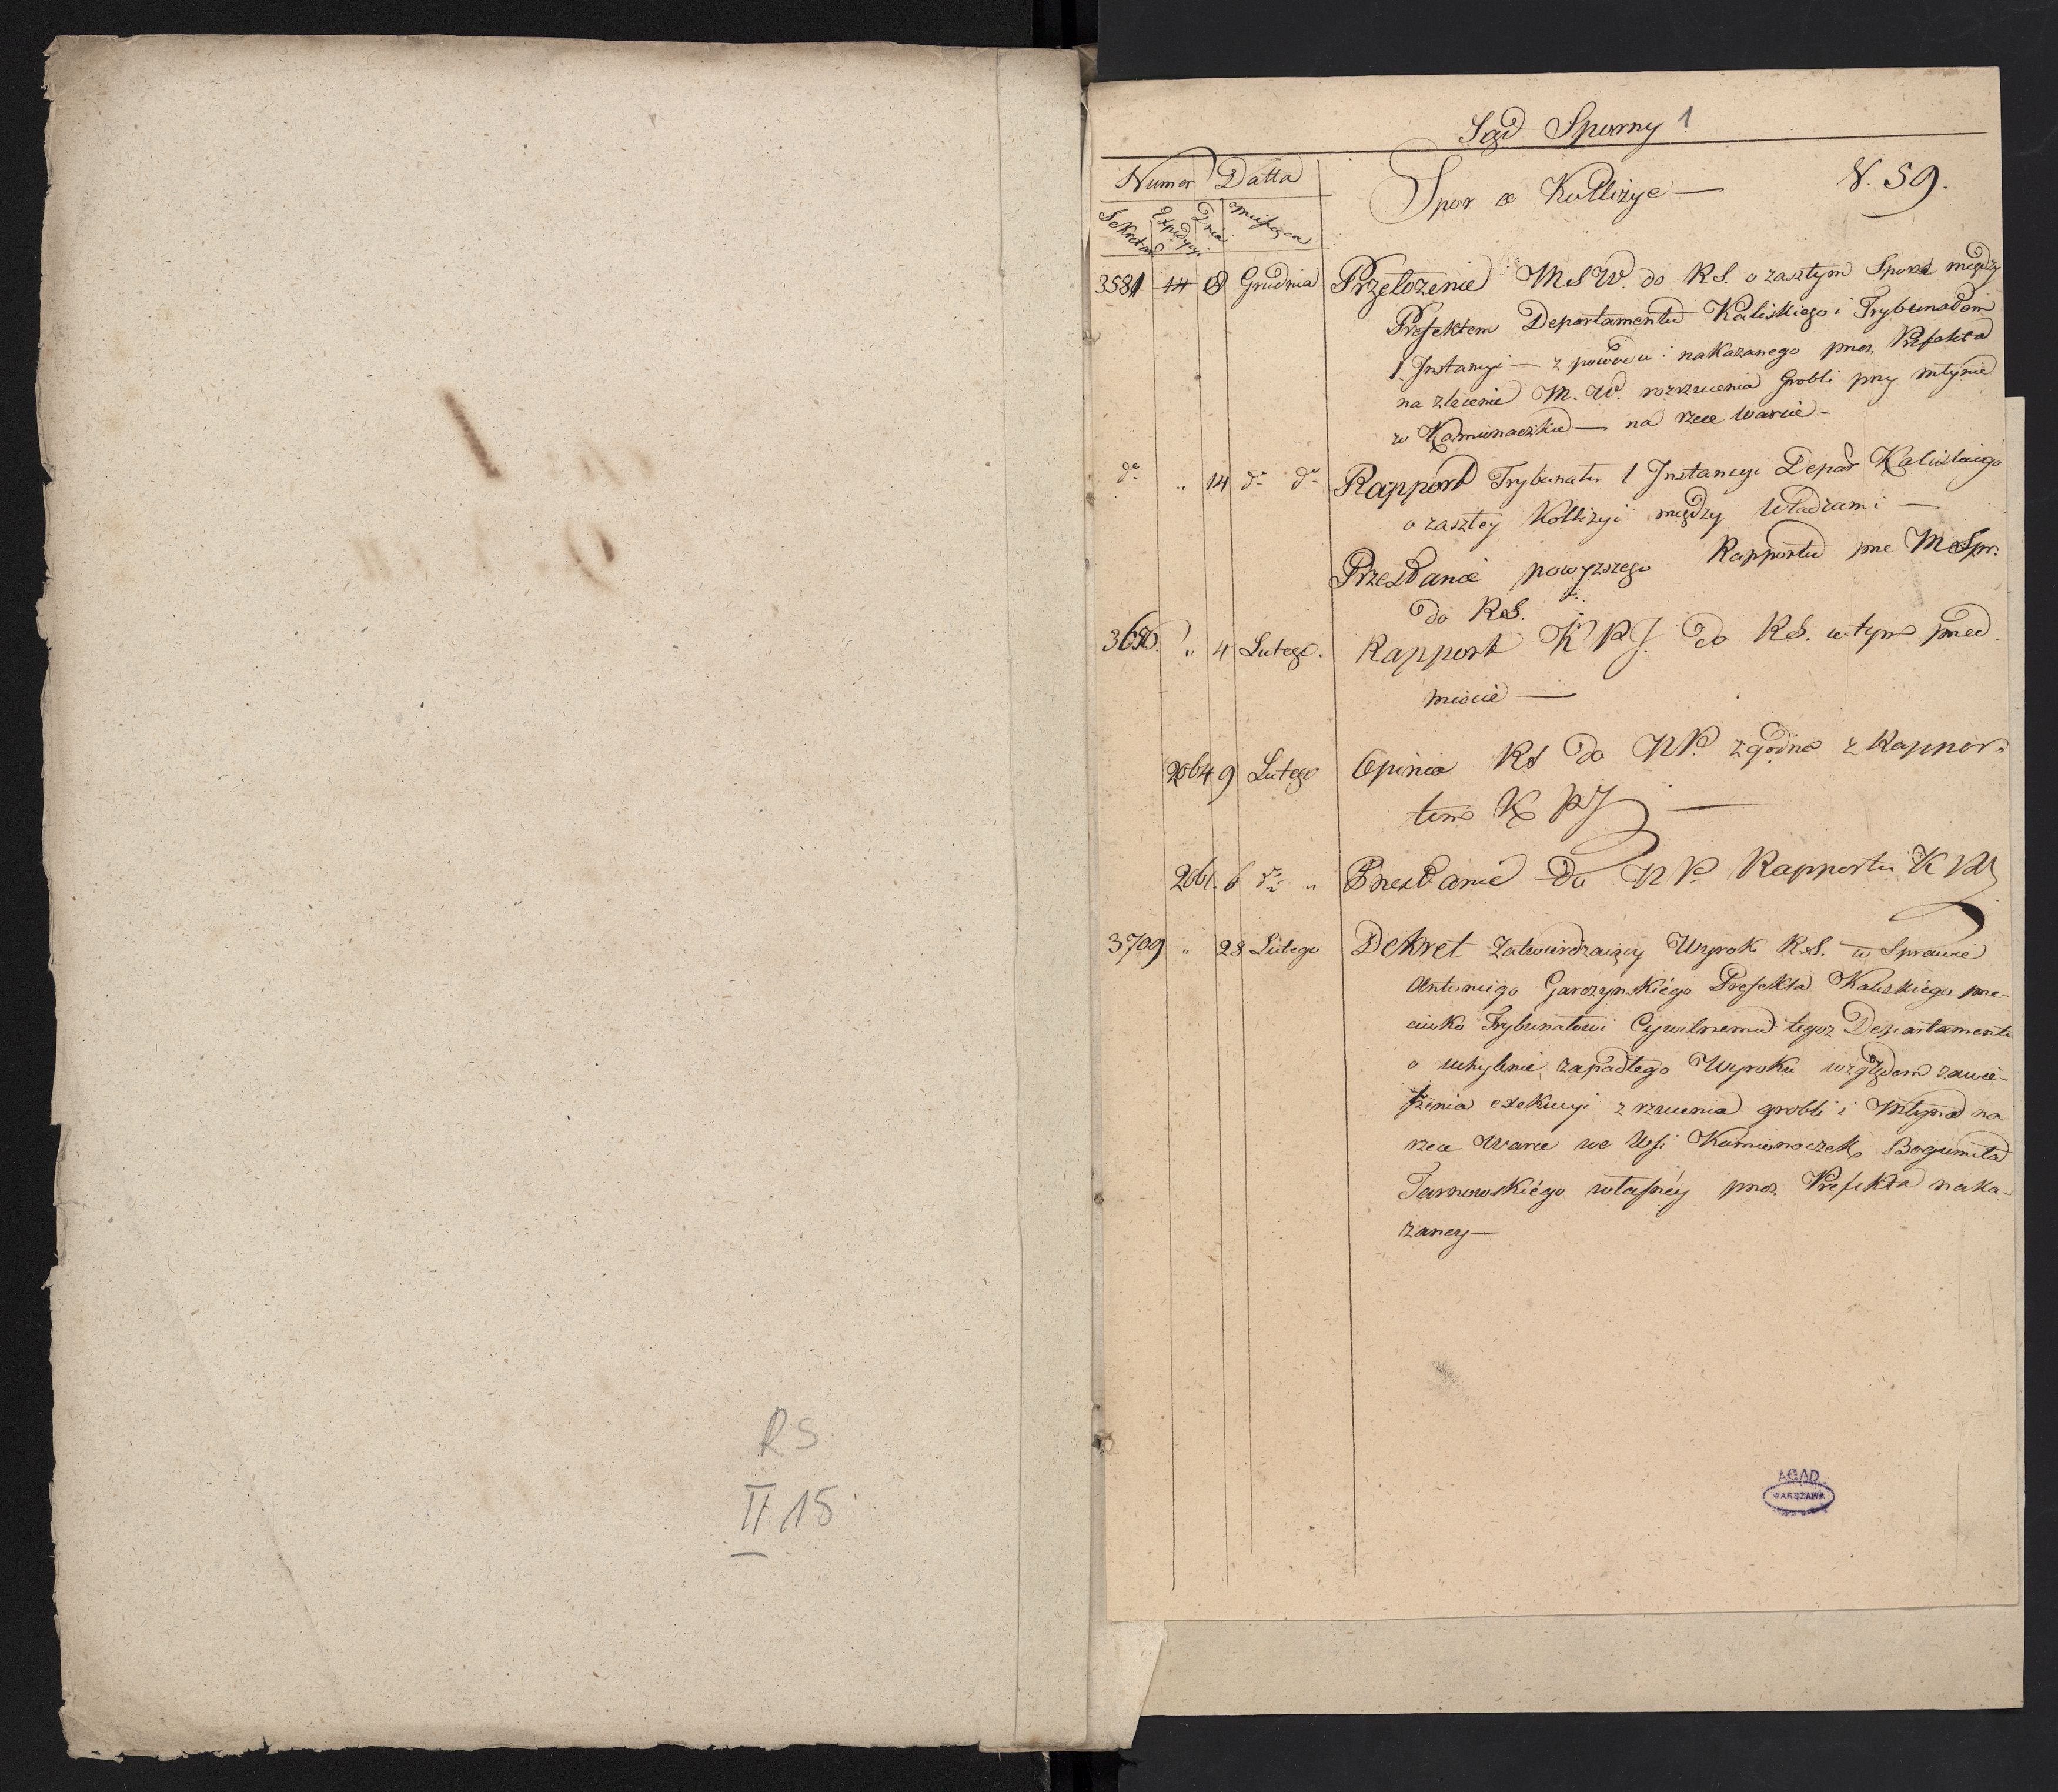 RS
II 15
Sąd Sporny 1
Numer Datta
Sekretar. Expedycyi. Dnia Miesiąca
Spor o Kollizye — N. 59.
3581 14 18 Grudnia Przełożenie MSW. do RS. o zaszłym Sporze między
Prefektem Departamentu Kaliskiego i Trybunałem
1 Instancyi — z powodu nakazanego przez Prefekta
na zlecenie M. W. rozrzucenia Grobli przy młynie
w Kamionaczku — na rzece Warcie -
do " 14 do do Rapport Trybunału 1 Instancyi Depar Kaliskiego
o zaszłey Kollizyi między Władzami —
Przesłanie powyższego Rapportu prze MSpr.
do RS.
" 4 Lutego. Rapport K P J. do RS. w tym przed
miocie —
2064 9 Lutego Opinia RS do NP. zgodna z Rappor-
tem K PJ —
2061. 6 do " Przesłanie do NP. Rapportu K PJ
3709 " 28 Lutego Dekret zatwierdzaiący Wyrok RS. w Sprawie
Antoniego Garczynskiégo Prefekta Kaliskiégo prze-
ciwko Trybunałowi Cywilnemu tegoz Departamentu
o uchylenie zapadłego Wyroku względem zawie-
szenia exekucyi zrzucenia grobli i Młyna na
rzece Warce we Wsi Kamionaczek Bogumiła
Tarnowskiégo własney przez Prefekta naka-
zaney —
AGAD
WARSZAWA